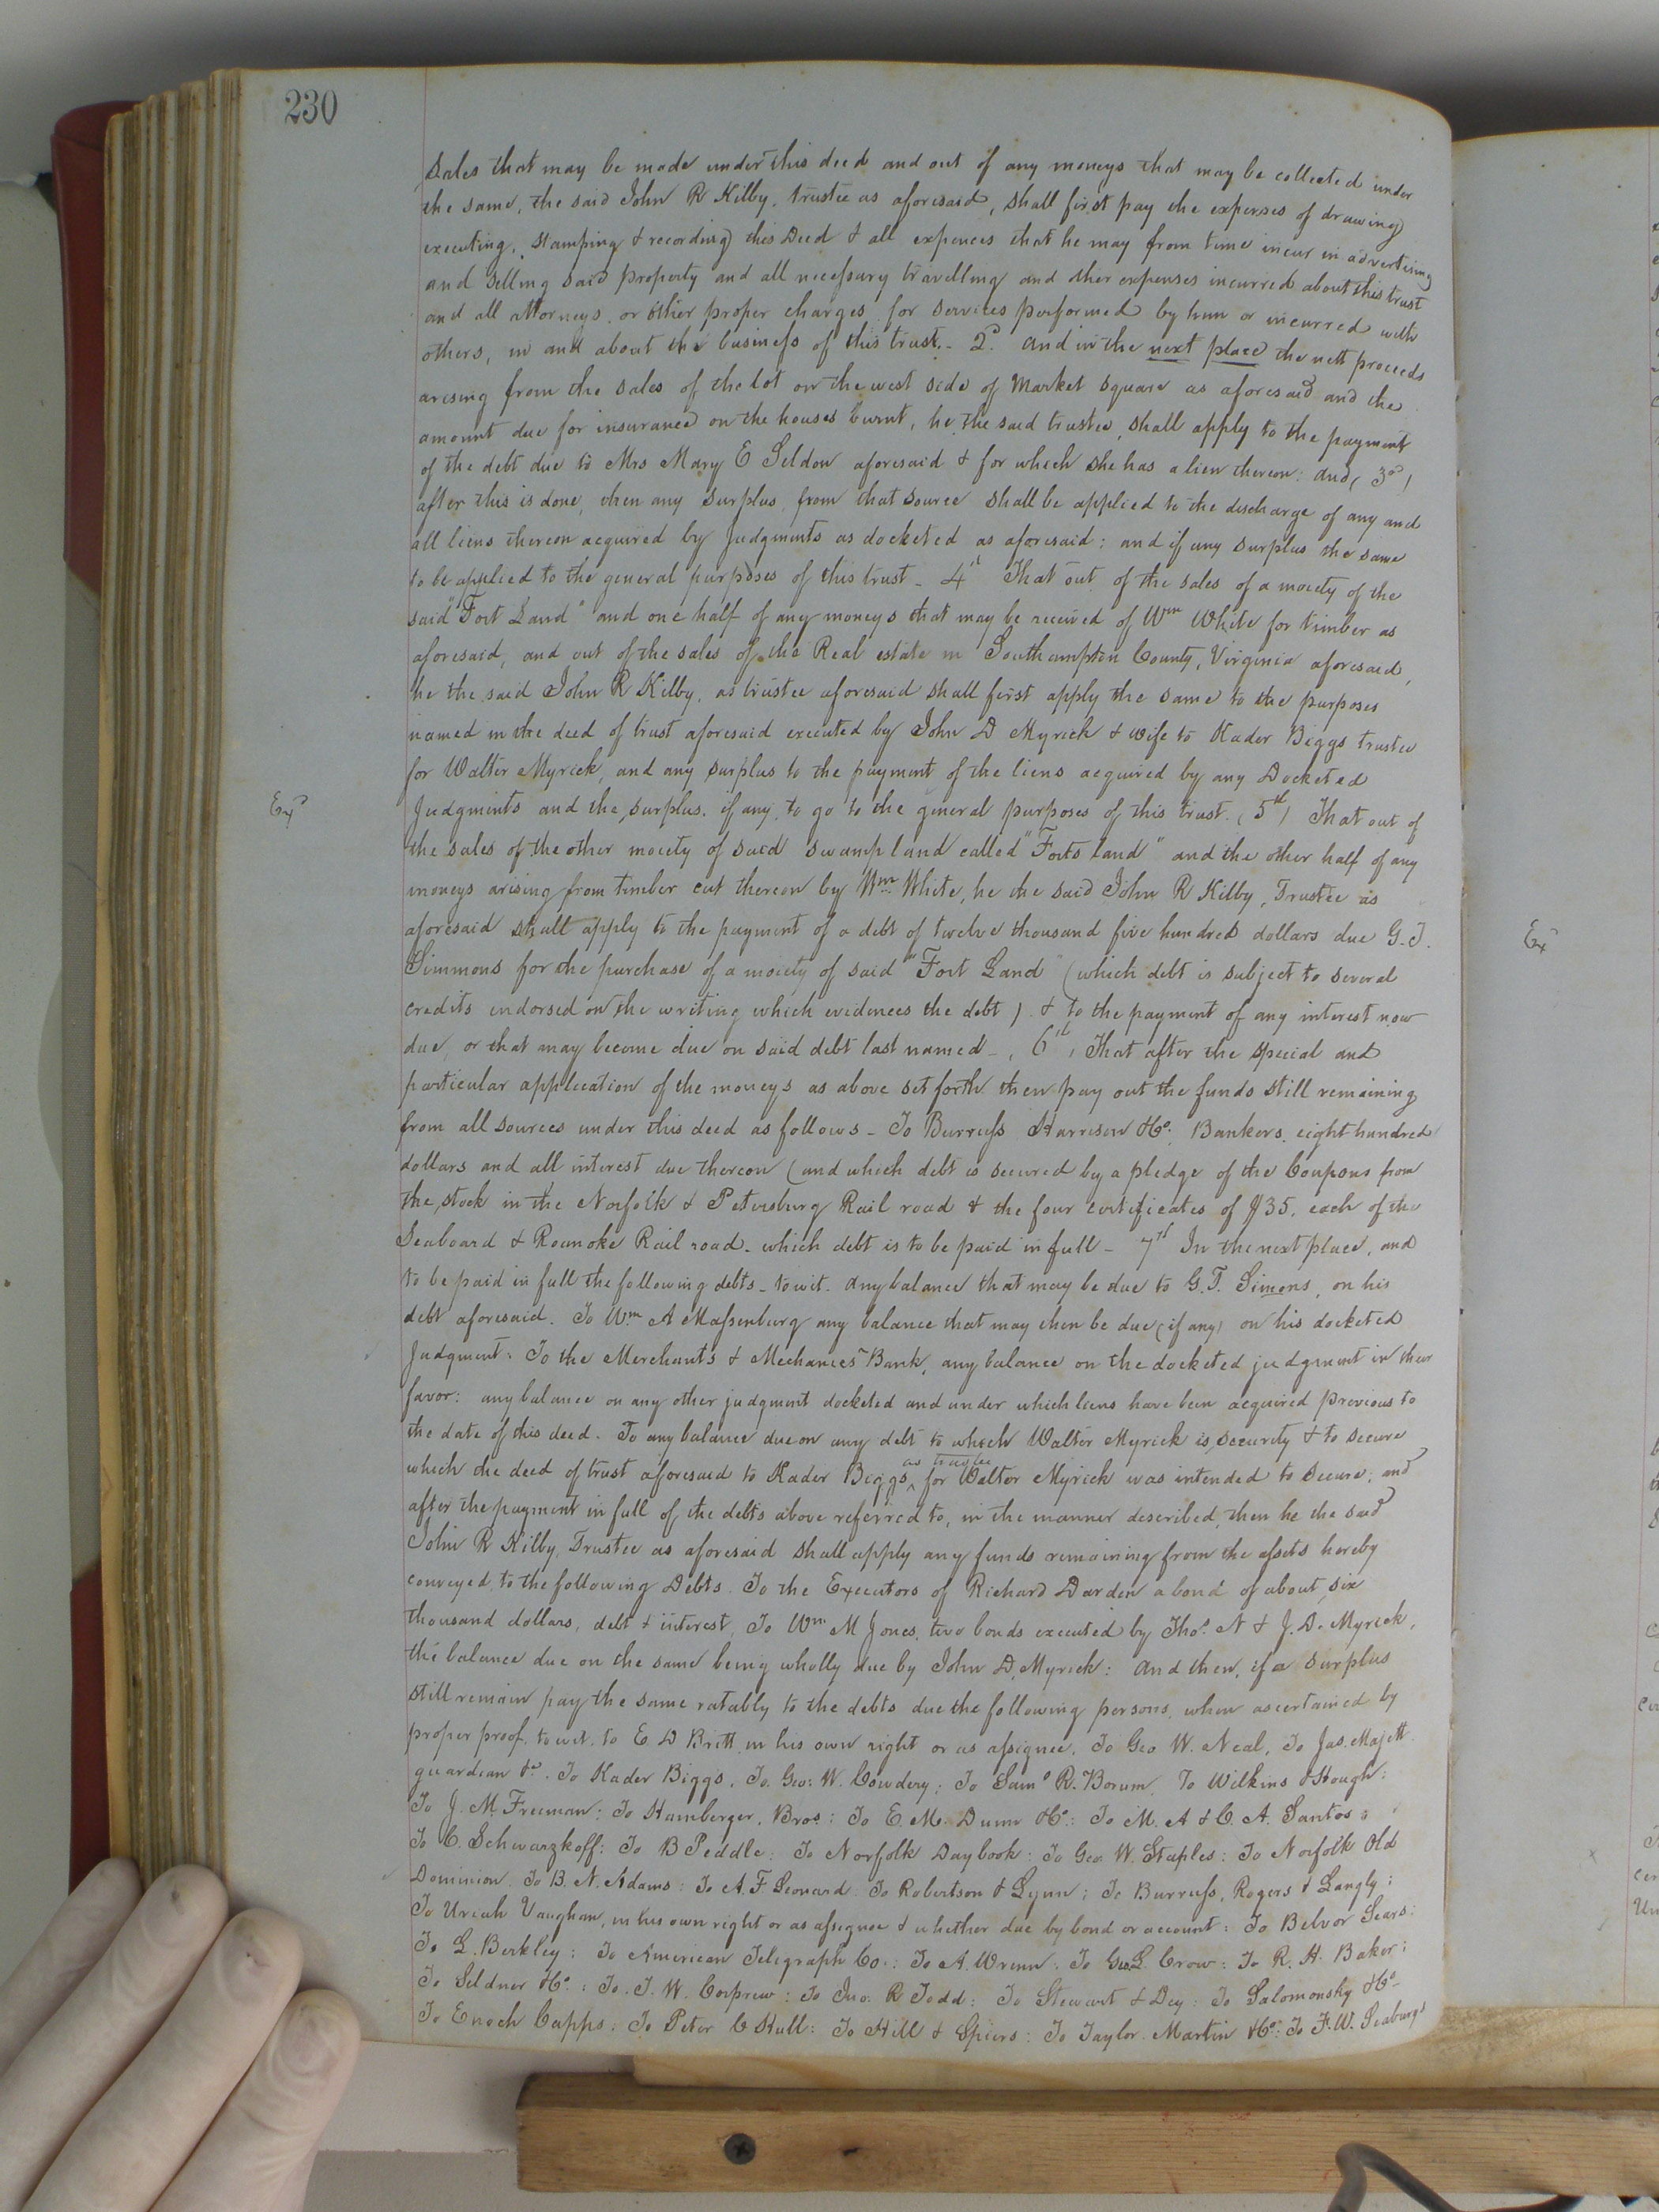 230
Sales that may be made under this deed and out of any moneys that may be collected under
the same, the said John R Kilby, trustee as aforesaid, shall first pay the expenses of drawing
executing, stamping & recording this Deed & all expences that he may from time incur in advertising
and selling said property and all necessary travelling and other expenses incurred about this trust
and all attorneys, or other proper charges for services performed by him or incurred with
others, in and about the business of this trust. - 2d. and in the next place the nett proceeds
arising from the sales of the lot on the west side of Market Square as aforesaid and the
amount due for insurance on the houses burnt, he the said trustee, shall apply to the payment
of the debt due to Mrs Mary E Seldon aforesaid & for which she has a lien thereon: and (3d)
after this is done, then any surplus from that source shall be applied to the discharge of any and
all liens thereon acquired by judgments as docketed as aforesaid; and if any surplus the same
to be applied to the general purposes of this trust - 4th That out of the sales of a moiety of the
said "Fort Land" and one half of any moneys that may be received of Wm White for timber as
aforesaid, and out of the sales of the Real estate in Southampton County, Virginia aforesaid,
he the said John R Kilby, as trustee aforesaid shall first apply the same to the purposes
named in the deed of trust aforesaid executed by John D Myrick & wife to Kader Biggs trustee
for Walter Myrick, and any surplus to the payment of the liens acquired by any Docketed
Exd
Judgments and the surplus, if any, to go to the general purposes of this trust. (5th) That out of
the sales of the other moiety of said swamp land called "Forts land" and the other half of any
moneys arising from timber cut thereon by Wm White, he the said John R Kilby, Trustee as
aforesaid shall apply to the payment of a debt of twelve thousand five hundred dollars due G. T.
Simmons for the purchase of a moiety of said "Fort Land" (which debt is subject to several
credits endorsed on the writing which evidences the debt) & to the payment of any interest now
due, or that may become due on said debt last named -, 6th, That after the special and
particular application of the moneys as above set forth then pay out the funds still remaining
from all sources under this deed as follows - To Burruss Harrison & Co. Bankers, eight hundred
dollars and all interest due thereon (and which debt is secured by a pledge of the Coupons from
the stock in the Norfolk & Petersburg Rail road & the four certificates of $35. each of the
Seaboard & Roanoke Rail road - which debt is to be paid in full - 7th In the next place, and
to be paid in full the following debts - to wit. any balance that may be due to G. T. Simons, on his
debt aforesaid. To Wm A Massenburg any balance that may then be due (if any) on his docketed
Judgment: To the Merchants & Mechanics Bank, any balance on the docketed judgment in their
favor: any balance on any other judgment docketed and under which liens have been acquired previous to
the date of this deed. To any balance due on any debt to which Walter Myrick is security & to secure
which the deed of trust aforesaid to Kader Biggs ^as trustee for Walter Myrick was intended to secure; and
after the payment in full of the debts above referred to, in the manner described, then he the said
John R Kilby, Trustee as aforesaid shall apply any funds remaining from the assets hereby
conveyed to the following Debts. To the Executors of Richard Darden a bond of about six
thousand dollars, debt & interest, To Wm M Jones, two bonds executed by Thos. N & J. D. Myrick,
the balance due on the same being wholly due by John D. Myrick: and then, if a surplus
still remain pay the same ratably to the debts due the following persons, when ascertained by
proper proof, to wit, to E. D Britt in his own right or as assignee, To Geo W. Neal, To Jas. Majett
guardian &c. To Kader Biggs, To Geo: W. Cowdery: To Saml R. Borum, To Wilkins & Hough:
To J. M. Freeman: To Hamberger, Bros: To E. M. Dunn & Co.: To M. A & C. A. Santos:
To C. Schwarzkoff: To B Peddle: To Norfolk Daybook: To Geo. W. Staples: To Norfolk Old
Dominion: To B. N. Adams: To A. F Leonard: To Robertson & Lynn: To Burruss, Rogers & Langly:
To Uriah Vaughan, in his own right or as assignee & whether due by bond or account: To Belvor Sears:
To L. Berkley: To American Telegraph Co.: To A. Wrenn: To Geo. L Crow: To R. H. Baker:
To Seldner & Co.: To. T. W. Corprew: To Jno. R Todd: To Stewart & Dey: To Salomonsky & Co-
To Enoch Capps: To Peter C Hull: To Hill & Spiers: To Taylor Martin & Co: To F. W. Seabury
Exd